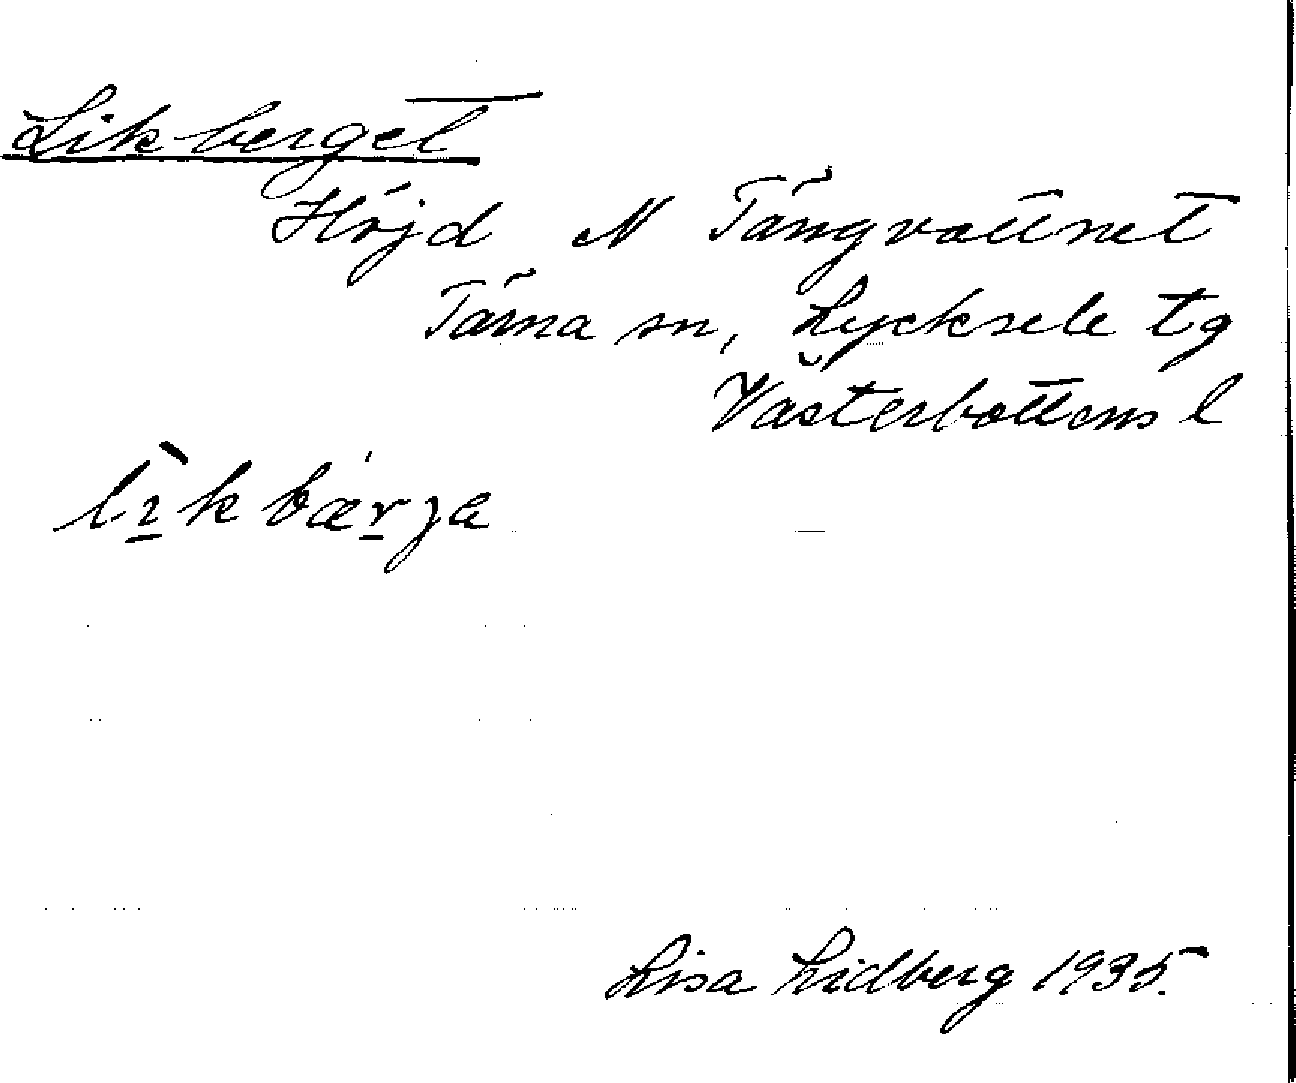 Likberget
Höjd N Tängvattnet
Tärna sn, Lycksele tg
Västerbottens l
l̀ı̱kbæṟja
Lisa Lidberg 1935.